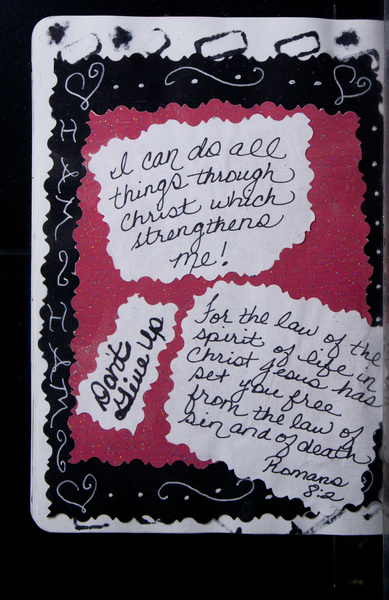 I AM ~ I AM ~
I can do all
things through
Christ which
strengthens
me!
Don't
Give Up
For the law of the
spirit of life in
Christ Jesus has
set you free
from the law of
sin and of death
Romans
8:2